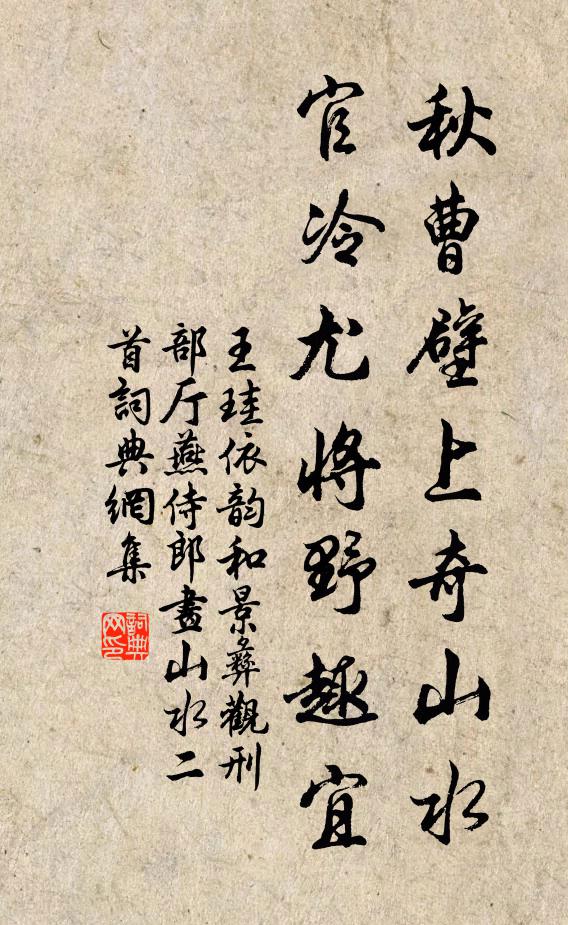 秋曹壁上奇山水
官冷尤将野趣宜
王珪依韵和景彝觀刑
部厅燕侍郎畫山水二
首詞典網集
詞典
网印